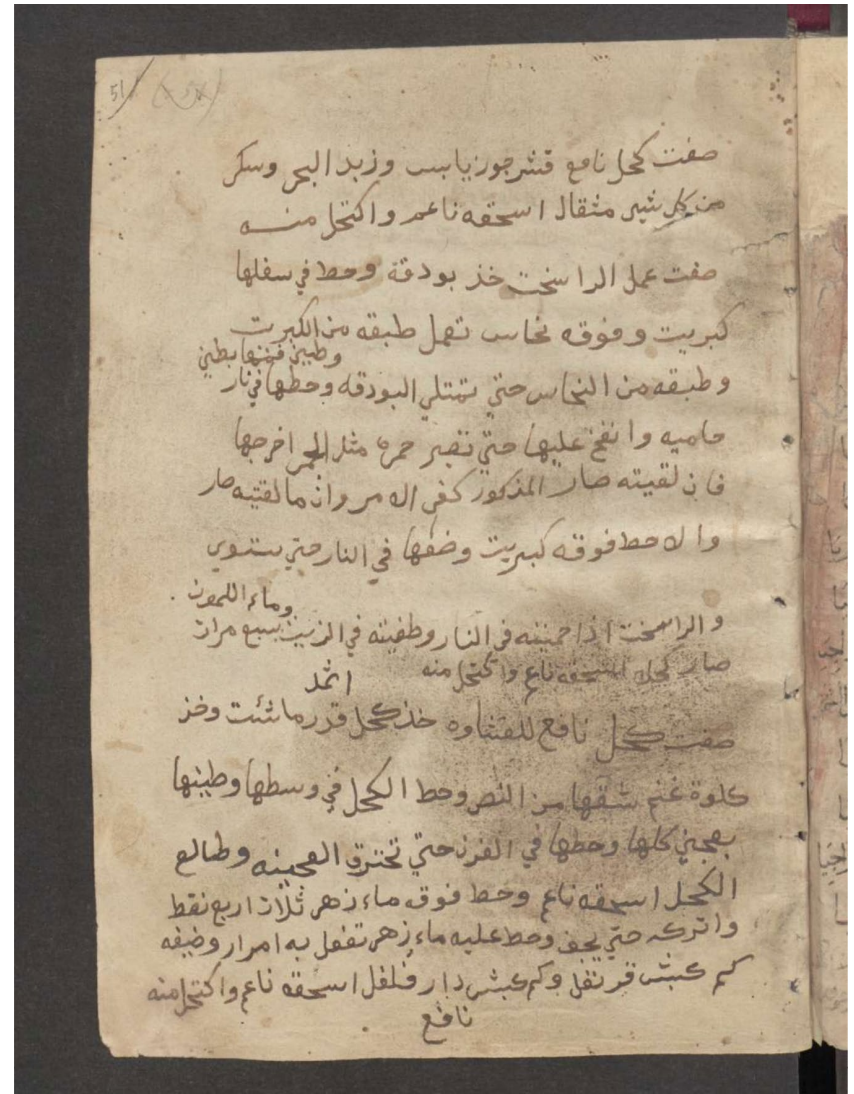 51
صفت كحل نافع قشر جوز يابس وزبد البحر وسكر
من كل شي مثقال اسحقه ناعم واكتحل منه
صفت عمل الراسخت خذ بودقة وحط في سفلها
كبريت وفوقه نحاس تعمل طبقه من الكبريت
وطبقه من النحاس حتي تمتلي البودقه وحطها في نار
حاميه وانفخ عليها حتي تصير حمره مثل الجمر اخرجها
فان لقيته صار المذكور كفي الامر وان ما لقتيه صار
والا حط فوقه كبريت وضعها في النار حتي يستوي
وماء اللمون
والراسخت اذا حميته في النار وطفيته في الزيت سبع مرات
صار كحل اسحقه ناعم واكتحل منه
اثمد
صفت كحل نافع للغشاوه خذ كحل قدر ما شئت وخذ
كلوة غنم شقها من النص وحط الكحل في وسطها وطينها
بعجين كلها وحطها في الفرن حتي تحترق العجينه وطالع
الكحل اسحقه ناعم وحط فوقه ماء زهر ثلاث اربع نقط
واتركه حتي يجف وحط عليه ماء زهر تفعل به امرار وضيفه
كم كبش قرنفل وكم كبش دار فلفل اسحقه ناعم واكتحل منه
نافع